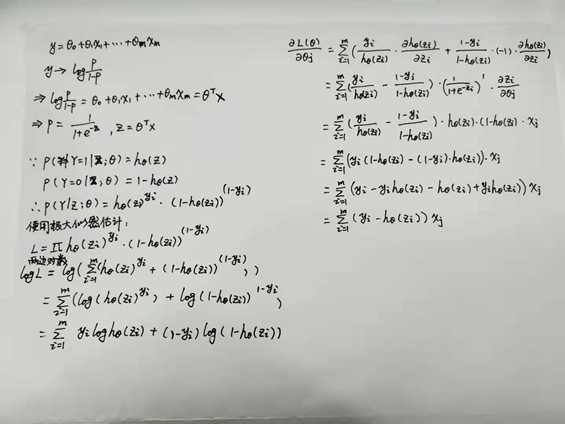 y = θ₀ + θ₁x₁ + ⋯ + θₘxₘ
y → log p/(1-p)
⇒ log p/(1-p) = θ₀ + θ₁x₁ + ⋯ + θₘxₘ = θᵀx
⇒ p = 1/(1+e^(-z)), z = θᵀx
∵ P(Y=1|z;θ) = h_θ(z)
P(Y=0|z;θ) = 1-h_θ(z)
∴ P(Y|z;θ) = h_θ(z)^(y_i) · (1-h_θ(z))^(1-y_i)
使用极大似然估计:
L = ∏ h_θ(z_i)^(y_i) · (1-h_θ(z_i))^(1-y_i)
两边对数
log L = log(∑_{i=1}^{m} (h_θ(z_i)^(y_i) + (1-h_θ(z_i))^(1-y_i)))
= ∑_{i=1}^{m} (log(h_θ(z_i)^(y_i)) + log(1-h_θ(z_i))^(1-y_i))
= ∑_{i=1}^{m} y_i log h_θ(z_i) + (1-y_i) log(1-h_θ(z_i))
∂L(θ)/∂θj = ∑_{i=1}^{m} (y_i/h_θ(z_i) · ∂h_θ(z_i)/∂z_i + (1-y_i)/(1-h_θ(z_i)) · (-1) · ∂h_θ(z_i)/∂z_i)
= ∑_{i=1}^{m} (y_i/h_θ(z_i) - (1-y_i)/(1-h_θ(z_i))) · (1/(1+e^(-z)))' · ∂z_i/∂θj
= ∑_{i=1}^{m} (y_i/h_θ(z_i) - (1-y_i)/(1-h_θ(z_i))) · h_θ(z_i) · (1-h_θ(z_i)) · xj
= ∑_{i=1}^{m} (y_i(1-h_θ(z_i)) - (1-y_i)·h_θ(z_i)) · xj
= ∑_{i=1}^{m} (y_i - y_i h_θ(z_i) - h_θ(z_i) + y_i h_θ(z_i)) xj
= ∑_{i=1}^{m} (y_i - h_θ(z_i)) xj